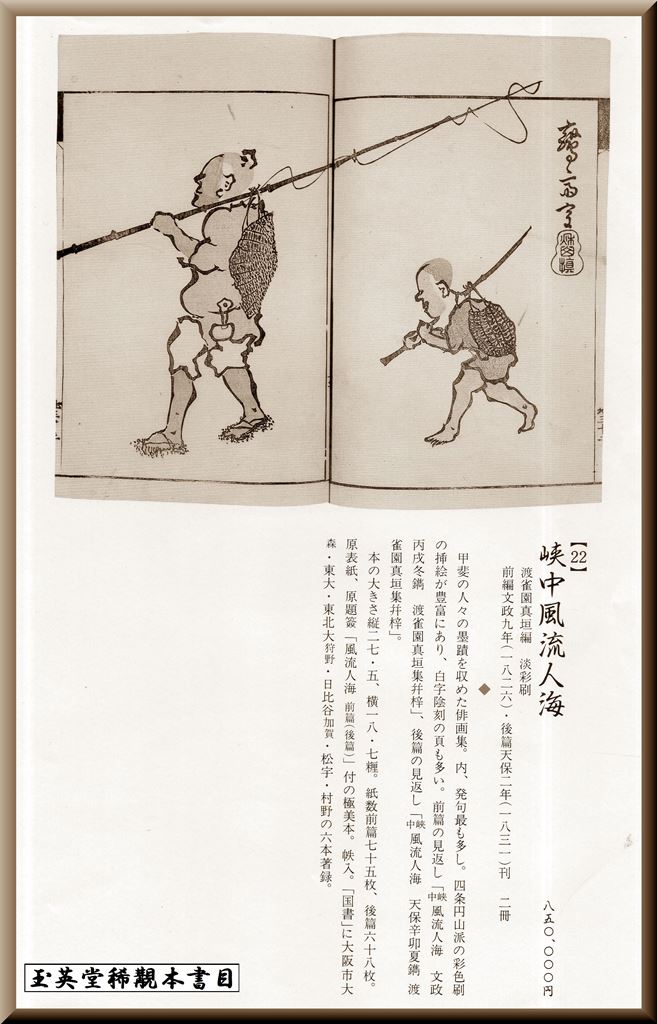 【22】
峡中風流人海
渡雀園真垣編　淡彩刷
前編文政九年(一八二六)・後篇天保二年(一八三一)刊　二冊
八五〇、〇〇〇円
甲斐の人々の墨蹟を収めた俳画集。内、発句最も多し。四条円山派の彩色刷
の挿絵が豊富にあり、白字陰刻の頁も多い。前篇の見返し「峡中風流人海　文政
丙戌冬鐫　渡雀園真垣集幷梓」、後篇の見返し「峡中風流人海　天保辛卯夏鐫　渡
雀園真垣集幷梓」。
本の大きさ縦二七・五、横一八・七糎。紙数前篇七十五枚、後篇六十八枚。
原表紙、原題簽「風流人海 前篇(後篇)」付の極美本。帙入。「国書」に大阪市大
森・東大・東北大狩野・日比谷加賀・松宇・村野の六本著録。
玉英堂稀覯本書目